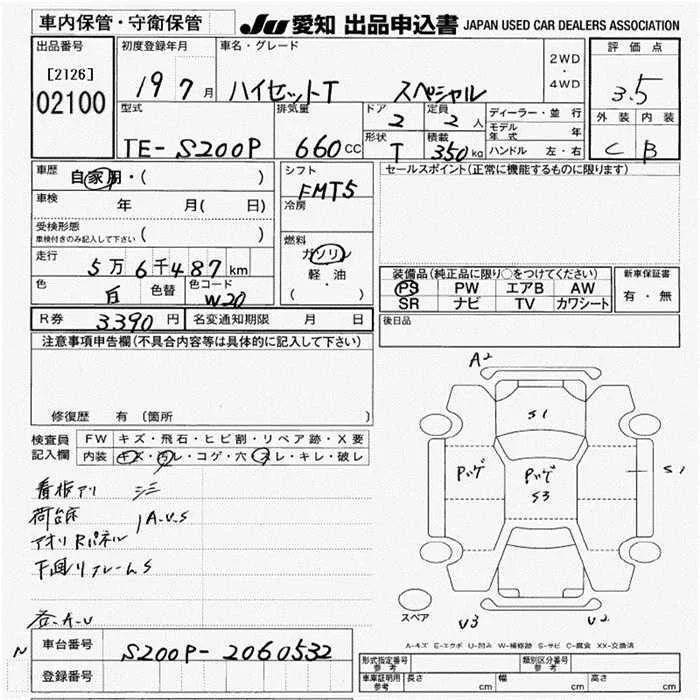 車内保管・守衛保管
JU 愛知 出品申込書 JAPAN USED CAR DEALERS ASSOCIATION
出品番号
[2126]
02100
初度登録年月
19 7月
車名・グレード
ハイゼットT スペシャル
2WD
・
4WD
評価点
3.5
外装 内装
C B
型式
TE-S200P
排気量
660CC
ドア
2
定員
2人
形状
T
積載
350kg
ディーラー・並行
モデル年式 年
ハンドル 左・右
車歴
自家用・( )
車検
年 月( 日)
受検形態
車検付きのみ記入して下さい ( )
走行
5万6千487km
色
白
色替
色コード
W20
シフト
FMT5
冷房
燃料
ガソリン
軽油
・( )
セールスポイント(正常に機能するものに限ります)
装備品(純正品に限り○をつけてください)
PS PW エアB AW
SR ナビ TV カワシート
新車保証書
有・無
R券 3390円 名変通知期限 月 日
後日品
注意事項申告欄(不具合内容等は具体的に記入して下さい)
修復歴 有〔箇所 〕
検査員
記入欄
FW キズ・飛石・ヒビ割・リペア跡・X要
内装 キズ・汚レ・コゲ・穴・スレ・キレ・破レ
看板アリ
荷台床
アオリRパネル
A.U.S
下回リフレームS
各.A.U
A2
S1
Pッゲ
Pッゲ
S3
S1
スペア
V3
V2
A-キズ E-エクボ U-凹み W-補修跡 S-サビ C-腐食 XX-交換済
N
車台番号 S200P-2060532
登録番号
形式指定番号
参考
類別区分番号
参考
車庫証明用
参考
長さ cm 幅 cm 高さ cm